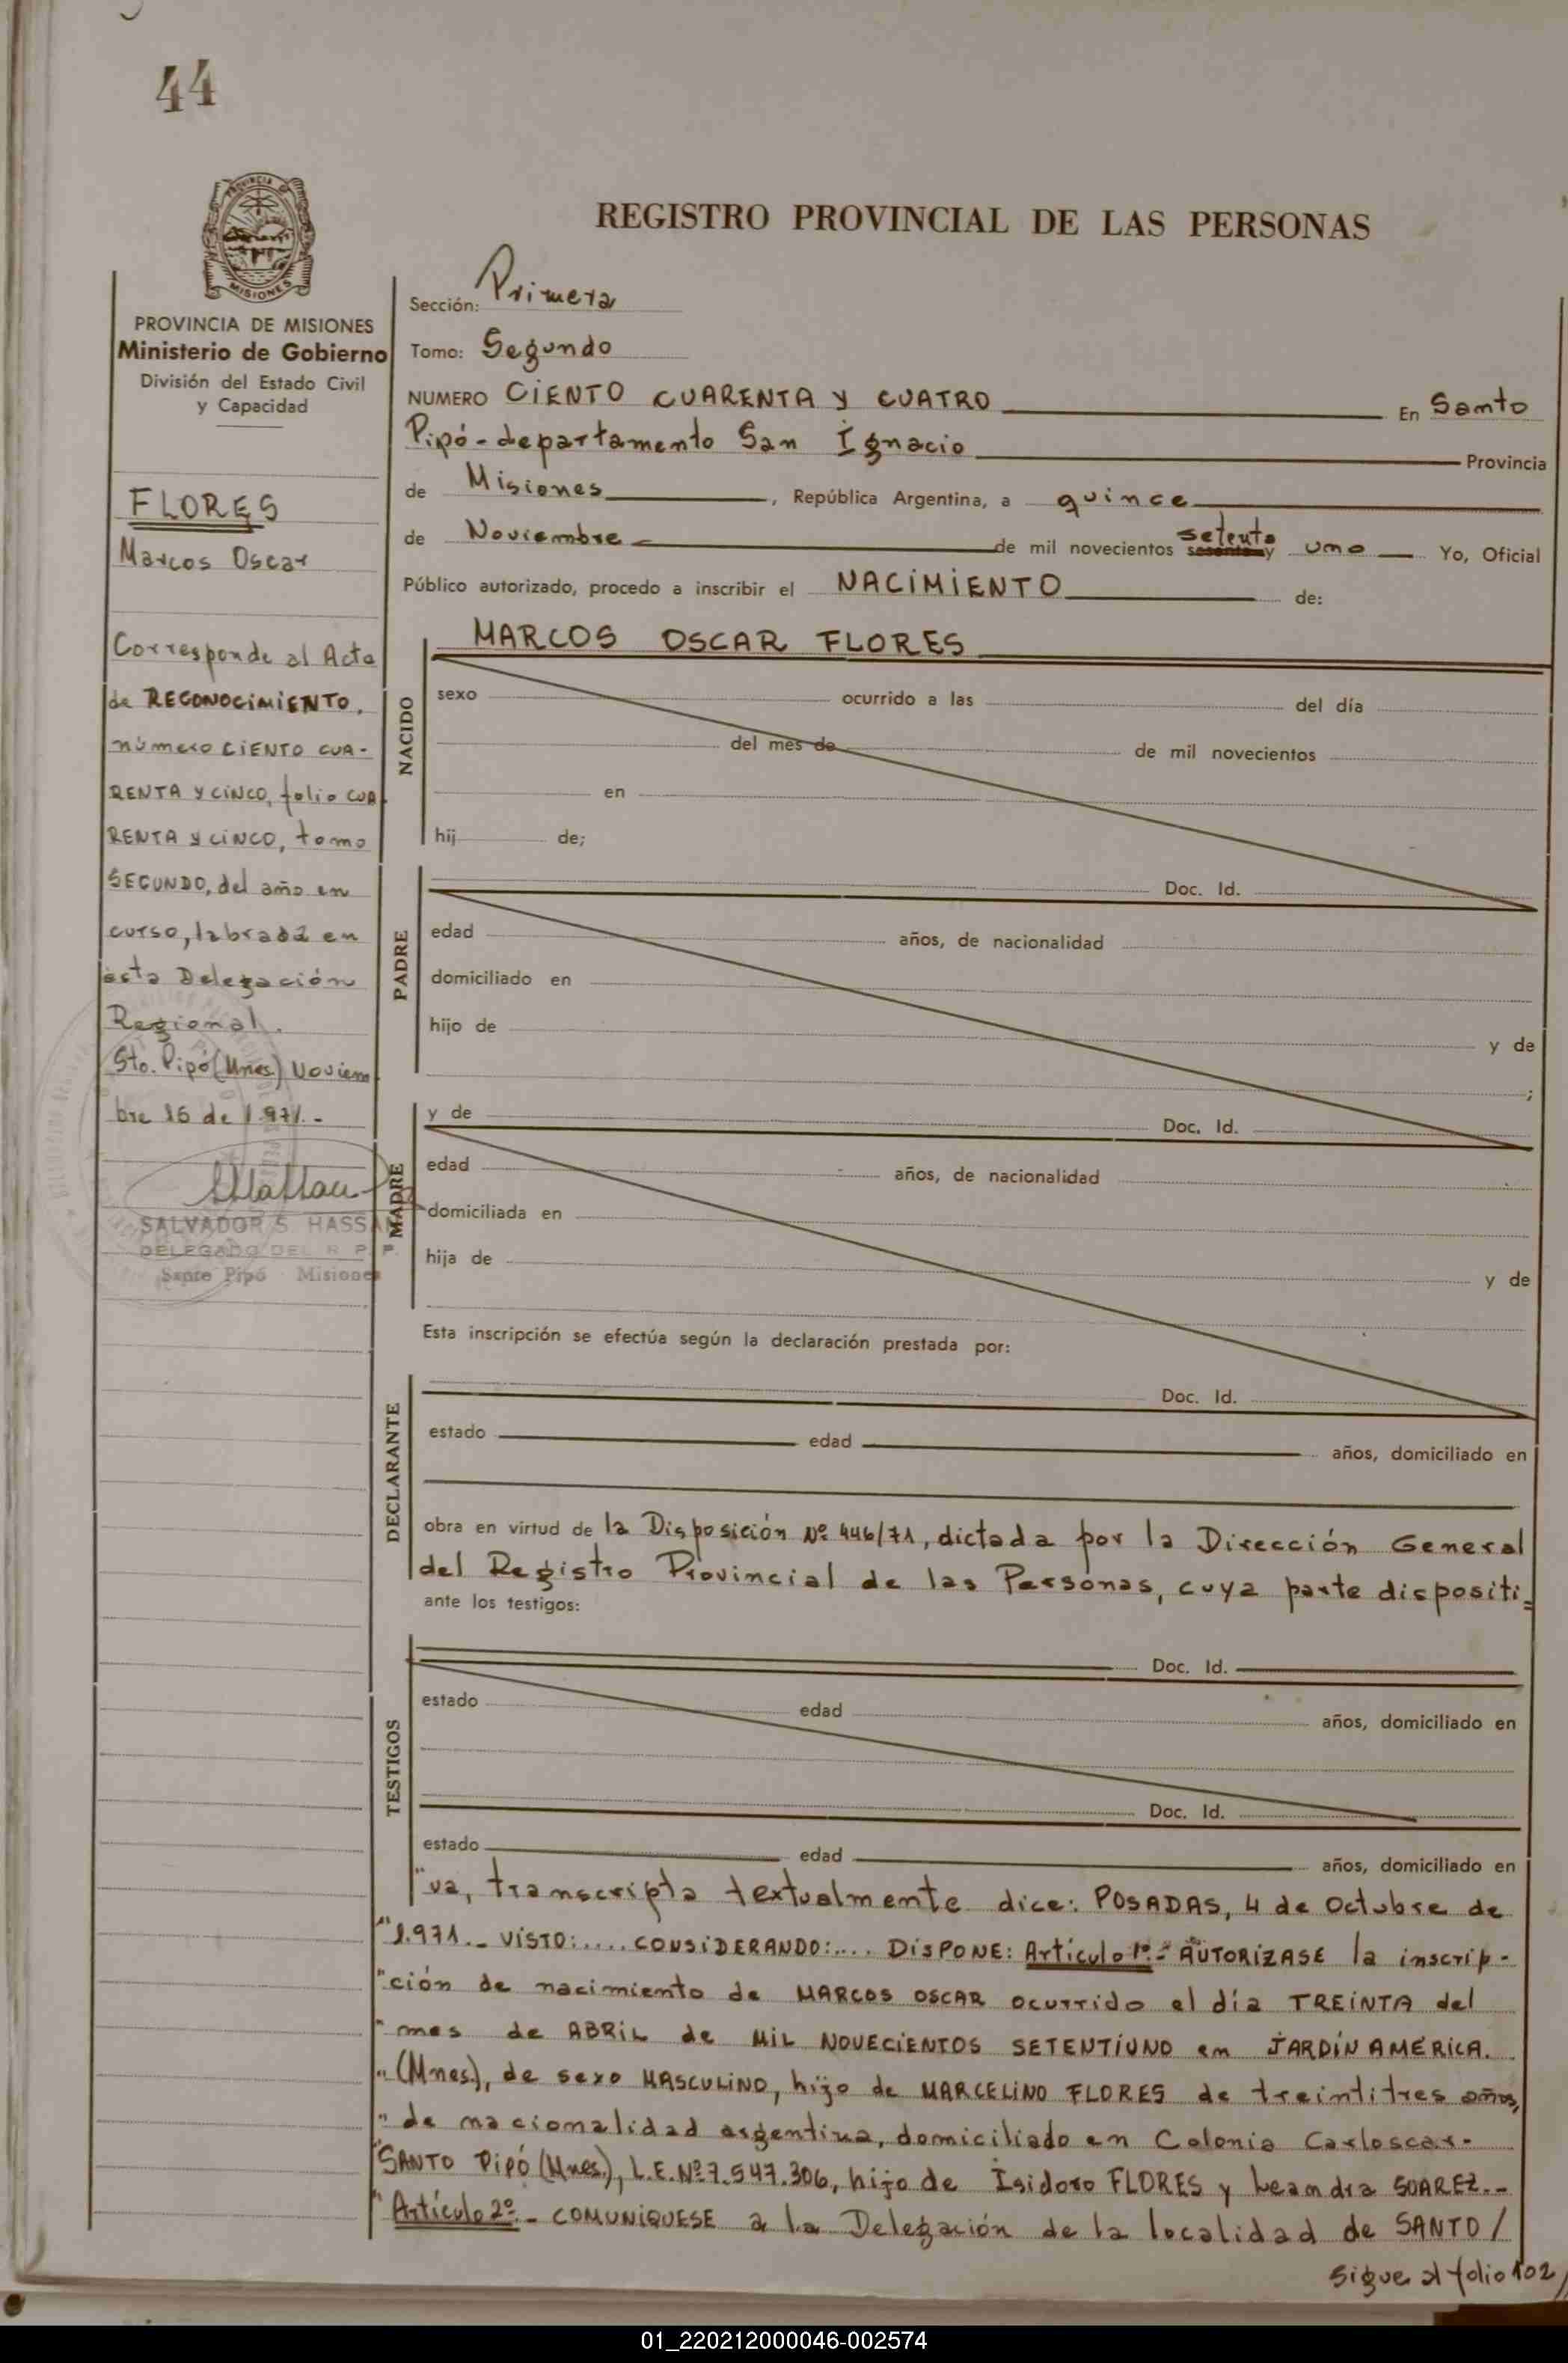 44
PROVINCIA DE MISIONES
PROVINCIA DE MISIONES
Ministerio de Gobierno
División del Estado Civil
y Capacidad
FLORES
Marcos Oscar
Corresponde al Acta
de RECONOCIMIENTO,
número CIENTO CUA-
RENTA Y CINCO, folio CUA
RENTA Y CINCO, tomo
SEGUNDO, del año en
curso, labrada en
ésta Delegación
Regional.
Sto. Pipó (Mnes.) Noviem
bre 15 de 1.971.-
SALVADOR S. HASSA
DELEGADO DEL R. P. P.
Santo Pipó Misiones
REGISTRO PROVINCIAL DE LAS PERSONAS
Sección: Primera
Tomo: Segundo
NUMERO CIENTO CUARENTA Y CUATRO En Santo
Pipó-departamento San Ignacio Provincia
de Misiones, República Argentina, a quince
de Noviembre de mil novecientos setenta y uno Yo, Oficial
Público autorizado, procedo a inscribir el NACIMIENTO de:
MARCOS OSCAR FLORES
NACIDO
sexo ocurrido a las del día
del mes de de mil novecientos
en
hij de;
PADRE
Doc. Id.
edad años, de nacionalidad
domiciliado en
hijo de y de
;
MADRE
y de Doc. Id.
edad años, de nacionalidad
domiciliada en
hija de y de
Esta inscripción se efectúa según la declaración prestada por:
DECLARANTE
Doc. Id.
estado edad años, domiciliado en
obra en virtud de la Disposición Nº 446/71, dictada por la Dirección General
del Registro Provincial de las Personas, cuya parte dispositi=
ante los testigos:
TESTIGOS
Doc. Id.
estado edad años, domiciliado en
Doc. Id.
estado edad años, domiciliado en
"va, transcripta textualmente dice: POSADAS, 4 de Octubre de
"1.971.- VISTO:.... CONSIDERANDO:.... DISPONE: Artículo 1º.- AUTORIZASE la inscrip-
"ción de nacimiento de MARCOS OSCAR ocurrido el día TREINTA del
"mes de ABRIL de MIL NOVECIENTOS SETENTIUNO en JARDÍN AMERICA.
"(Mnes.), de sexo MASCULINO, hijo de MARCELINO FLORES de treintitres años,
"de nacionalidad argentina, domiciliado en Colonia Carloscar-
"SANTO Pipó (Mnes.), L.E.Nº 7.547.306, hijo de Isidoro FLORES y Leandra SOAREZ.-
"Artículo 2º.- COMUNIQUESE a la Delegación de la localidad de SANTO /
Sigue al folio 102/
01_220212000046-002574